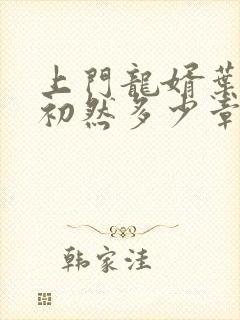 上門龍婿葉
初然多少章
韩家洼